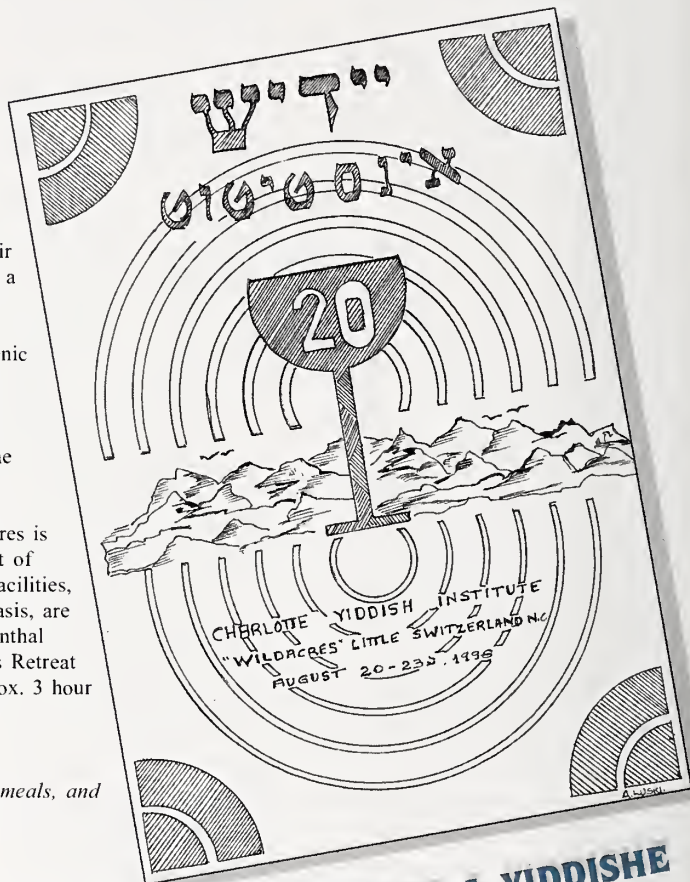 ir
a
nic
ne
res is
t of
acilities,
asis, are
nthal
s Retreat
ox. 3 hour
meals, and
יידיש
אינסטיטוט
20
CHARLOTTE YIDDISH INSTITUTE
"WILDACRES" LITTLE SWITZERLAND N.C
AUGUST 20-23 . 1996
A. LUSKI
YIDDISHE